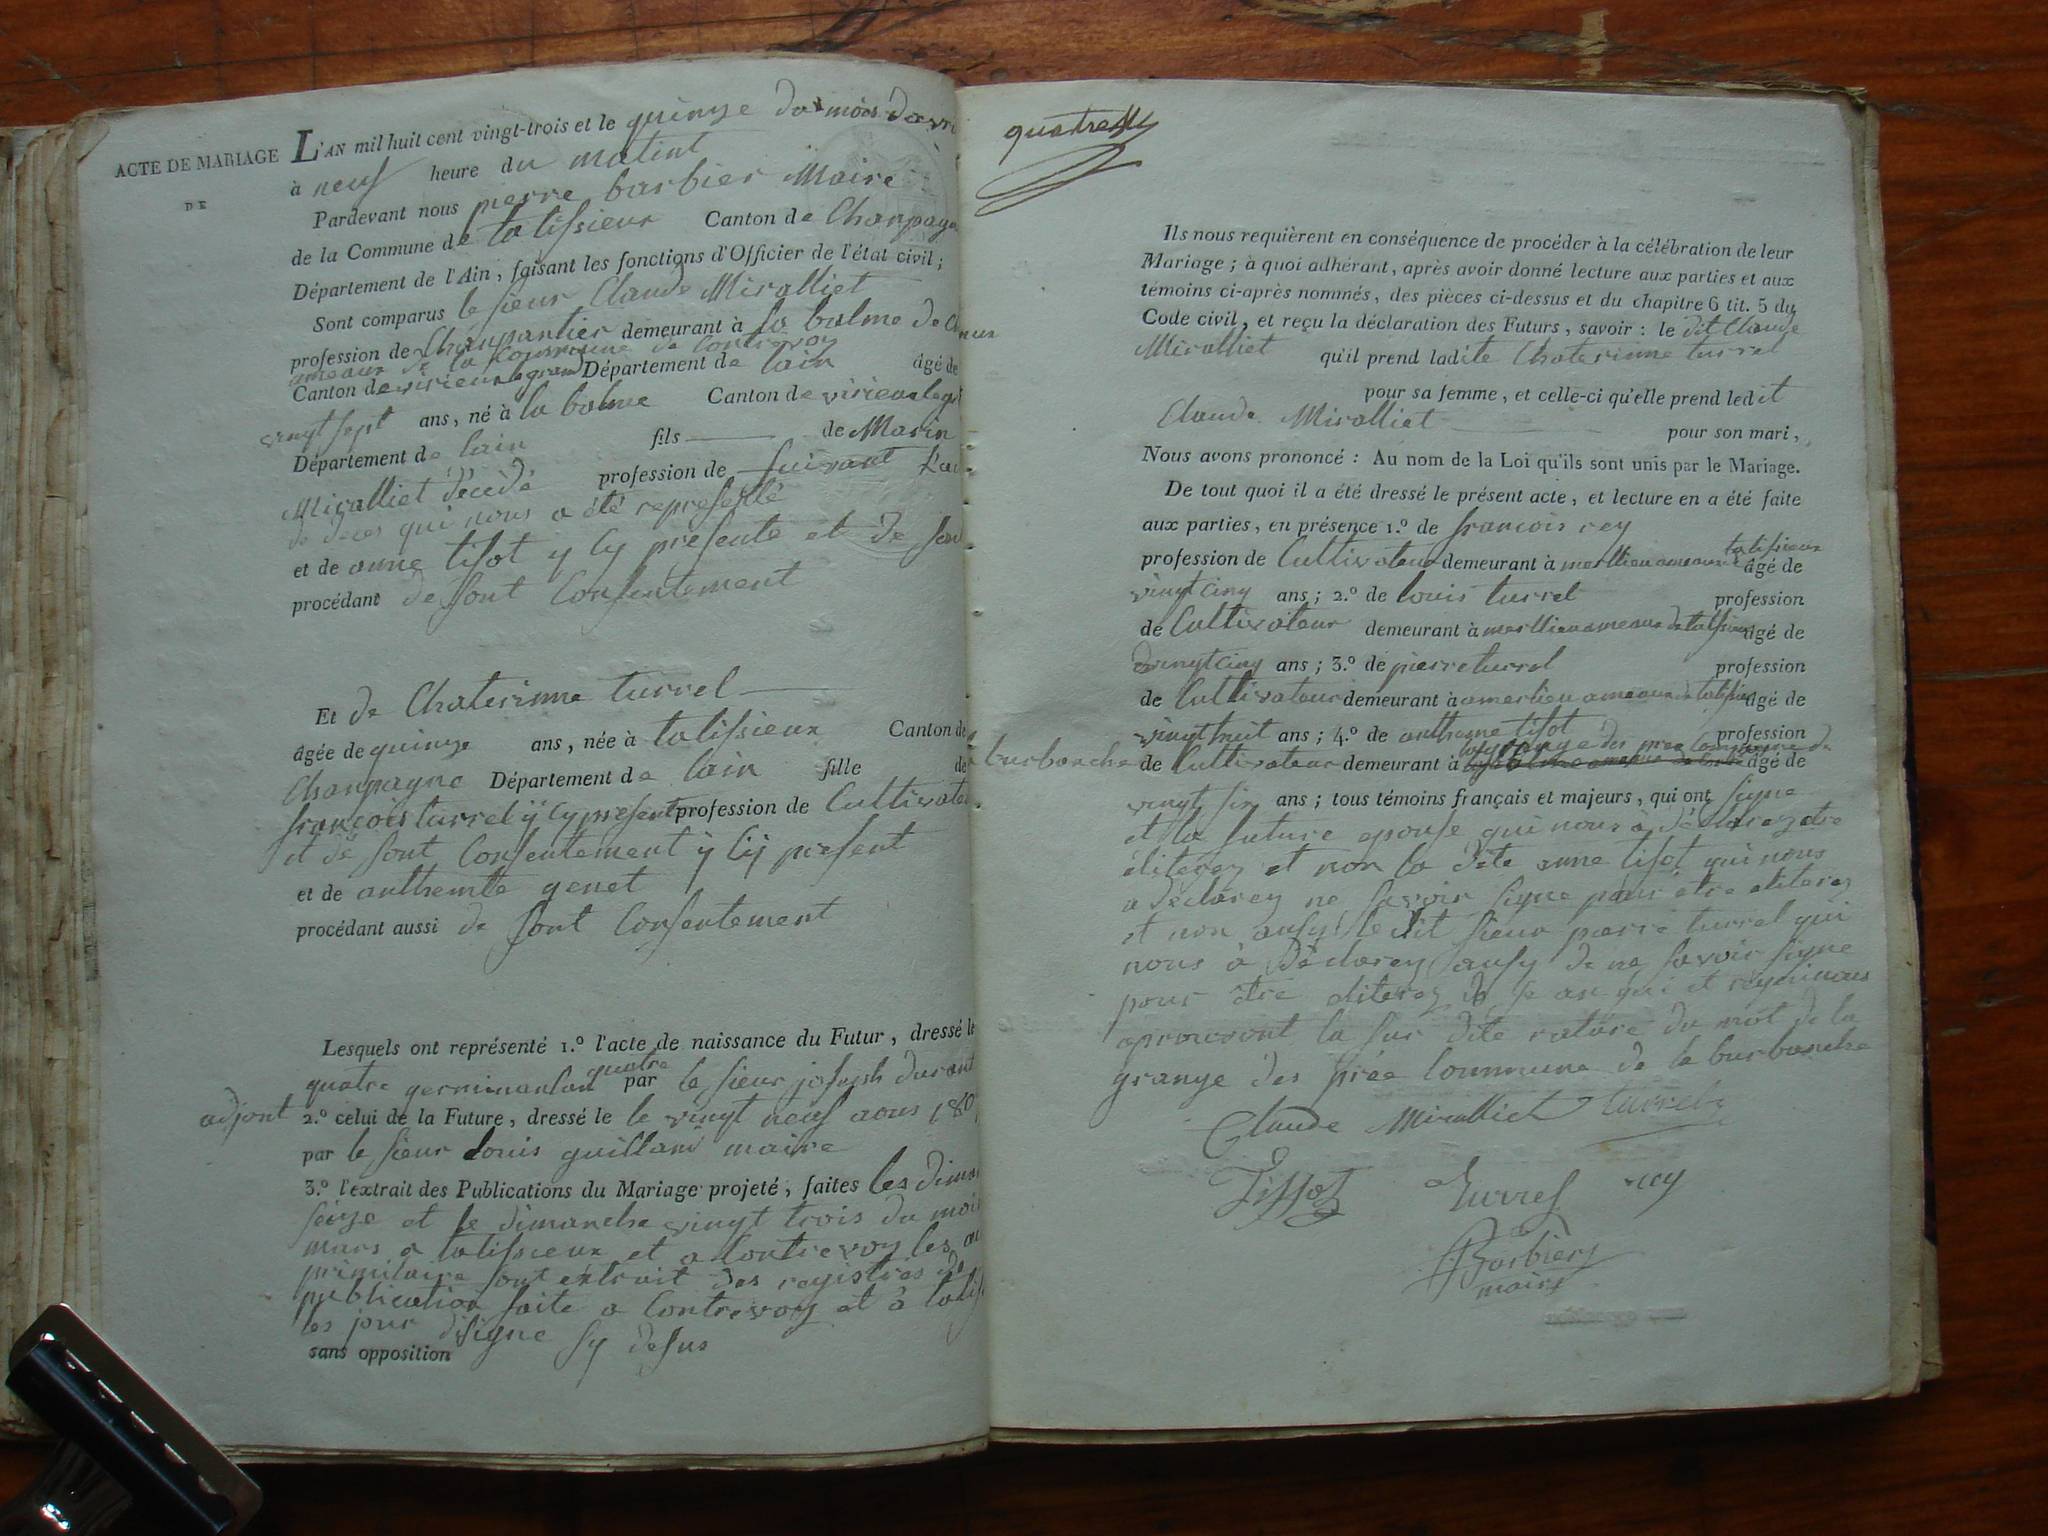 ACTE DE MARIAGE
DE
L'AN mil huit cent vingt-trois et le quinze du mois davri
à neuf heure du matint
Pardevant nous pierre barbier Maire
de la Commune de talissieux Canton de Chanpagn
Département de l'Ain, faisant les fonctions d'Officier de l'état civil;
Sont comparus le sieur Claude Miralliet
profession de Charpantier demeurant à la balme
ameaux de la Commune de Contrevoz
Canton de virieu le grand Département de lain âgé de
vingt sept ans, né à la balme Canton de virieu legr
Département de lain fils de Marin
Miralliet décédé profession de suivant
de deces qui nous a été represetté
et de anne tisot y cy presente et de son
procédant de sont Consentement
Et de Chaterinne turrel
âgée de quinze ans, née à talissieux Canton de
Chanpagne Département de lain fille de
françois turrel ÿ cy present profession de Cultivate
et dé sont Consentement ÿ cy present
et de anthemte genet
procédant aussi de sont Consentement
Lesquels ont représenté 1.º l'acte de naissance du Futur, dressé le
quatre germinan lan quatre par le sieur joseph durant
adjont 2.º celui de la Future, dressé le le vingt neuf aous 180
par le sieur Louis guilland maire
3.º l'extrait des Publications du Mariage projeté, faites les dima
seize et le dimanche vingt trois du moi
mars a talissieux et a Contrevoz les
sont extrait des registres de
publication faite a Contrevoz et à talis
les jour disigne sy desus
sans opposition
quatre
Ils nous requièrent en conséquence de procéder à la célébration de leur
Mariage; à quoi adhérant, après avoir donné lecture aux parties et aux
témoins ci-après nommés, des pièces ci-dessus et du chapitre 6 tit. 5 du
Code civil, et reçu la déclaration des Futurs, savoir: le dit Claude
Miralliet qu'il prend ladite Chaterinne turrel
pour sa femme, et celle-ci qu'elle prend ledit
Claude Miralliet pour son mari,
Nous avons prononcé: Au nom de la Loi qu'ils sont unis par le Mariage.
De tout quoi il a été dressé le présent acte, et lecture en a été faite
aux parties, en présence 1.º de francois rey
profession de Cultivateur demeurant à merllieu ameaux talissieux âgé de
vingt cinq ans; 2.º de louis turrel profession
de Cultivateur demeurant à merllieu ameaux de talissieu âgé de
vingt cinq ans; 3.º de pierre turrel profession
de Cultivateur demeurant à a merlieu ameaux de talissieu âgé de
vingt huit ans; 4.º de anthemte tisot profession
la grange des prée Commune de
la burbanche de Cultivateur demeurant à âgé de
vingt six ans; tous témoins français et majeurs, qui ont signe
et la future epouse qui nous à déclarez etre
éliterez et non la dite anne tisot qui nous
a déclarez ne savoir signe pour être eliterez
et non ausy le dit sieur pierre turrel qui
nous à déclarez ausy de ne savoir signe
pour être eliterez de ce an qui et
la sur dite rature du mot de la
grange des prée Commune de la burbanche
Claude Miralliet turrel
Tissot turrel rey
Barbier
maire